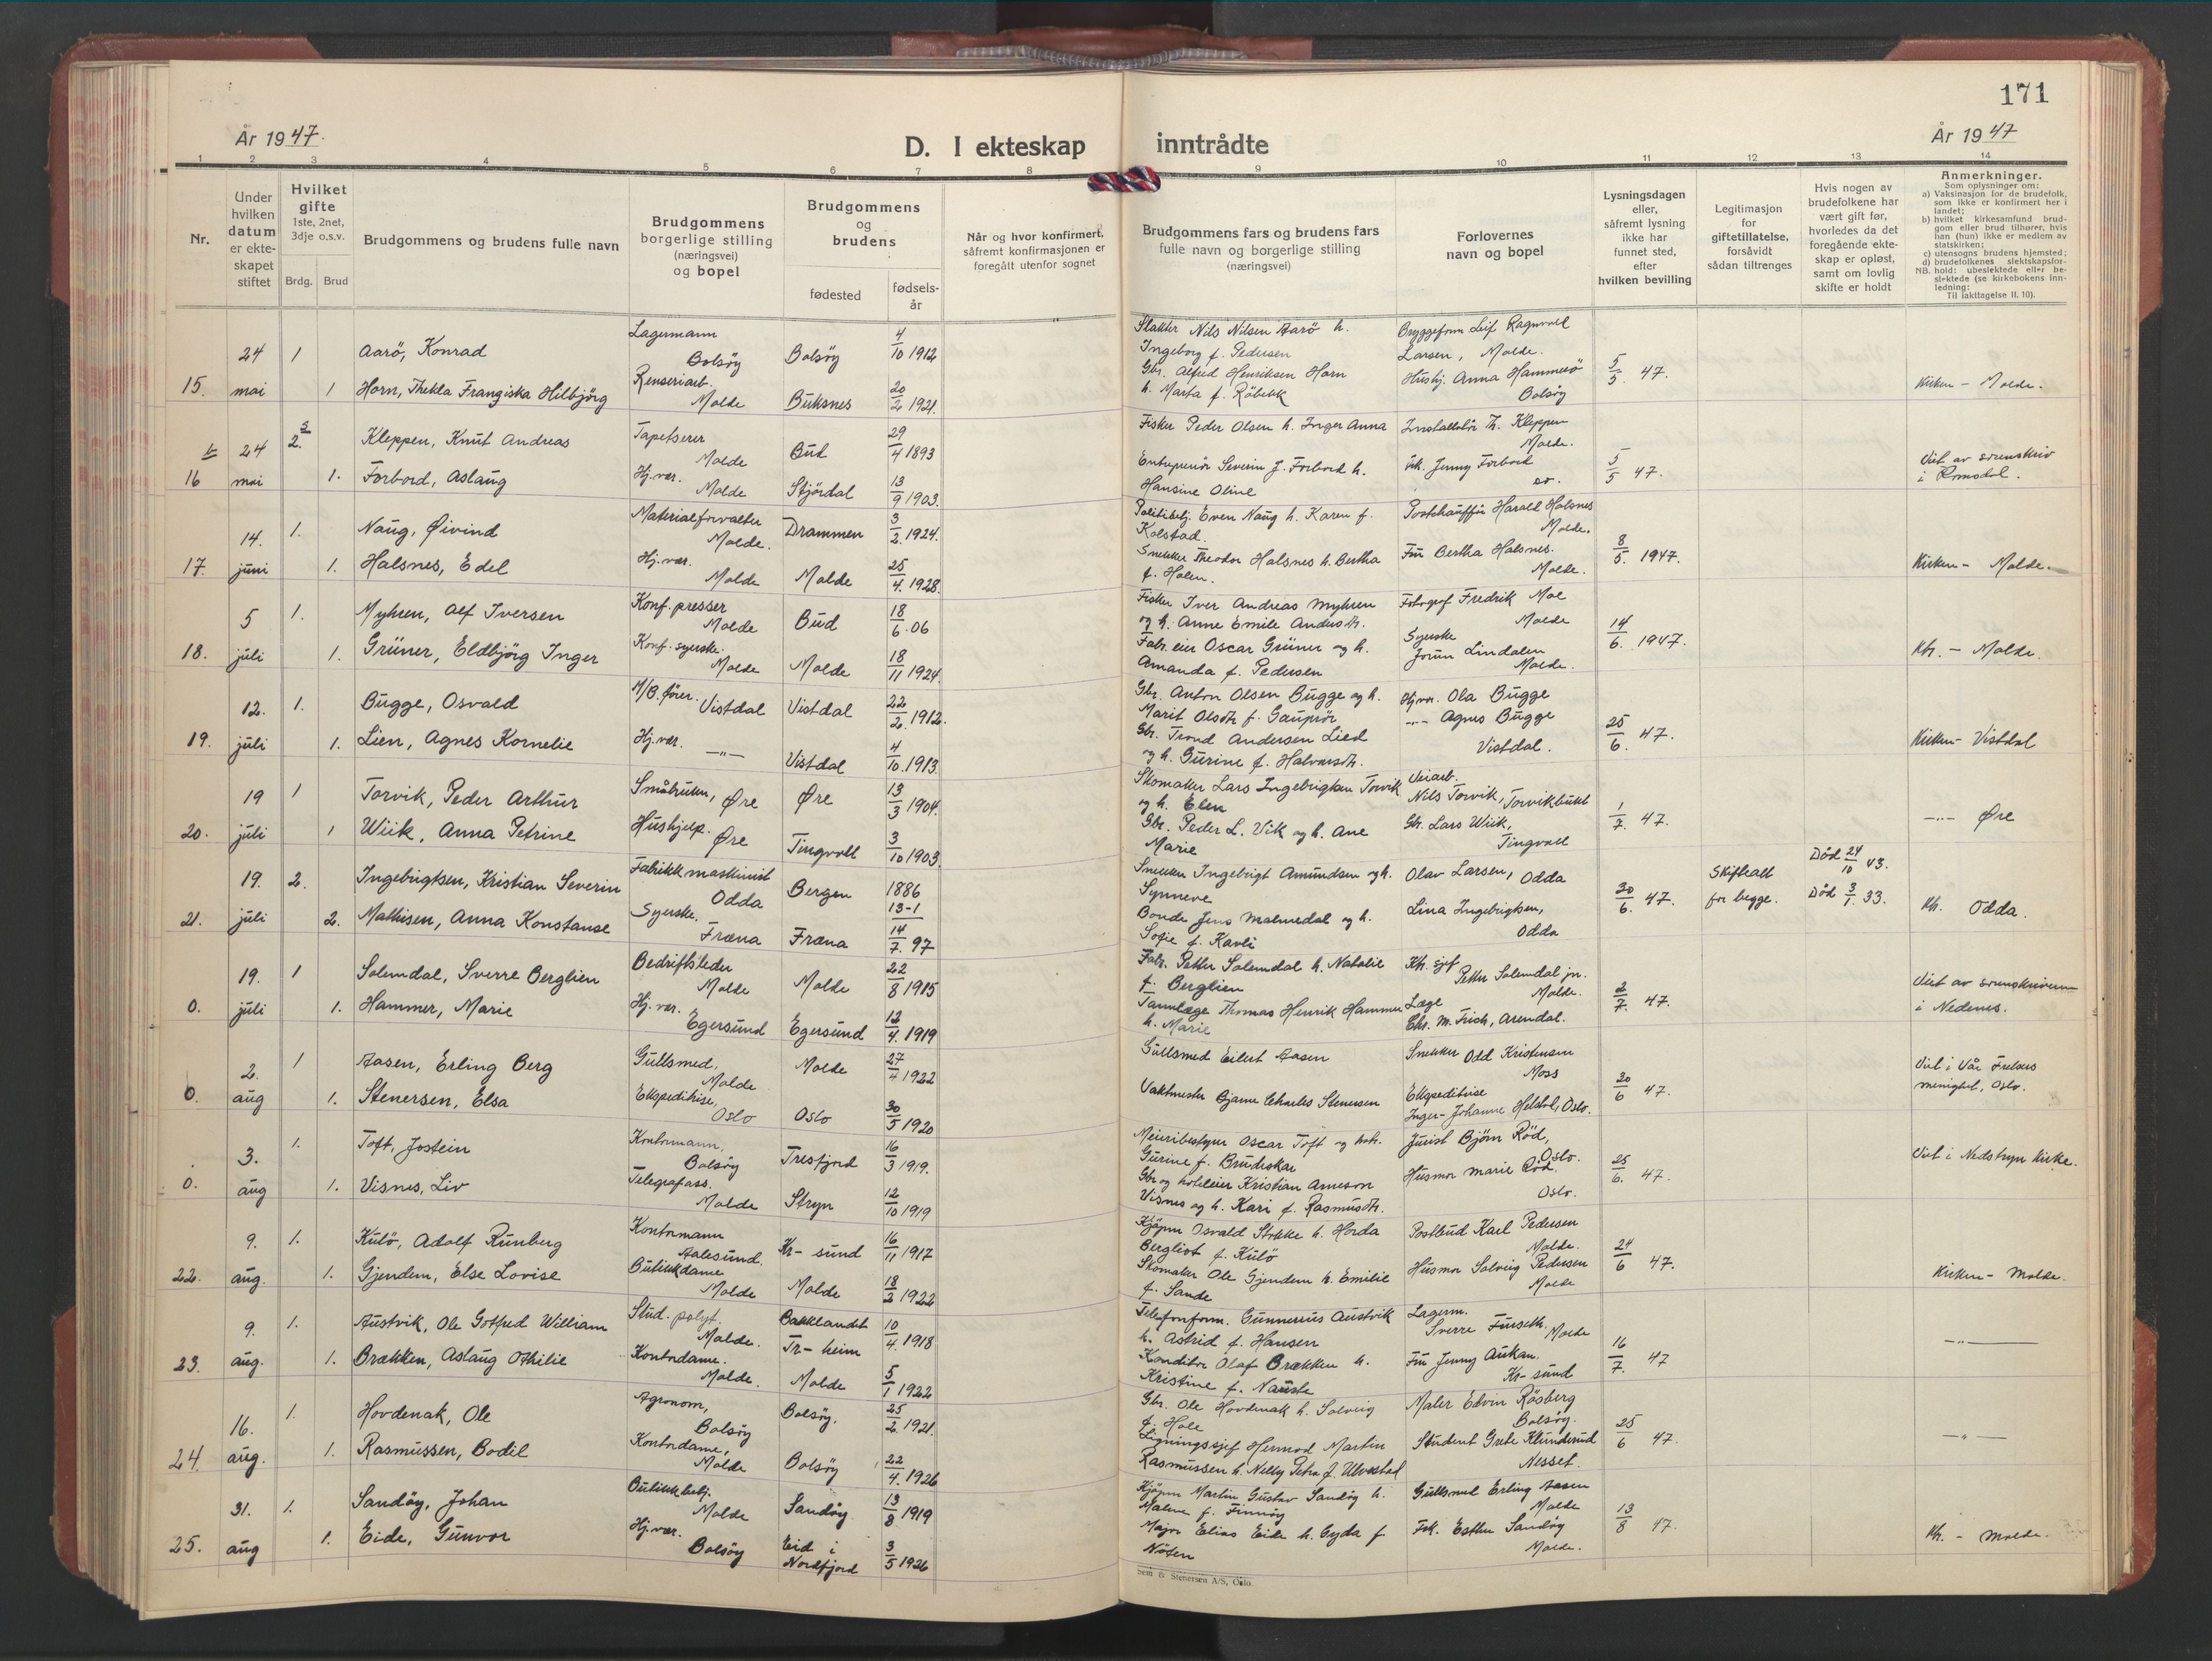 171
År 1947.
D. I ekteskap inntrådte
År 1947
1 2 3 4 5 6 7 8 9 10 11 12 13 14
Nr.
Under hvilken datum er ekteskapet stiftet
Hvilket gifte 1ste, 2net, 3dje o.s.v.
Brdg. Brud
Brudgommens og brudens fulle navn
Brudgommens borgerlige stilling (næringsvei) og bopel
Brudgommens og brudens
fødested
fødselsår
Når og hvor konfirmert, såfremt konfirmasjonen er foregått utenfor sognet
Brudgommens fars og brudens fars fulle navn og borgerlige stilling (næringsvei)
Forlovernes navn og bopel
Lysningsdagen eller, såfremt lysning ikke har funnet sted, efter hvilken bevilling
Legitimasjon for giftetillatelse, forsåvidt sådan tiltrenges
Hvis nogen av brudefolkene har vært gift før, hvorledes da det foregående ekteskap er opløst, samt om lovlig skifte er holdt
Anmerkninger.
Som oplysninger om:
a) Vaksinasjon for de brudefolk, som ikke er konfirmert her i landet;
b) hvilket kirkesamfund brudgom eller brud tilhører, hvis han (hun) ikke er medlem av statskirken;
c) utensogns brudens hjemsted;
d) brudefolkenes slektskapsforhold: ubeslektede eller beslektede (se kirkebokens innledning:
NB.
Til iakttagelse II. 10).
15. 24 mai 1 1
Aarö, Konrad
Lagermann Bolsöy
Bolsöy 4/10 1912
Horn, Thekla Frangiska Hilbjörg
Renseriarb. Molde
Buksnes 20/2 1921.
Slakter Nils Nilsen Aarö h.
Ingeborg f. Pedersen
Gbr. Alfred Henriksen Horn
h. Marta f. Röbekk
Bryggeform Leif Ragnvald
Larsen, Molde.
Hushj. Anna Hammerö
Bolsöy
5/5 47.
Kirken - Molde.
16 24 mai 2. 1.
Kleppen, Knut Andreas
Tapetserer Molde
Bud 29/4 1893
Forbord, Aslaug
Hj.vær. Molde
Stjördal 13/9 1903.
Fisker Peder Olsen h. Inger Anna
Entreprenör Severin J. Forbord h.
Hansine Oline
Installatör Th. Kleppen
Molde.
Frk. Jenny Forbord
5/5 47.
Viet av sorenskriv
i Romsdal.
17. 14. juni 1. 1.
Naug, Øivind
Materialforvalter Molde.
Drammen 3/2 1924.
Halsnes, Edel
Hj.vær. Molde
Molde 25/4. 1928.
Politibetj. Even Naug h. Karen f.
Kolstad.
Snekker Theodor Halsnes h. Bertha
f. Holen.
Postchauffür Harald Halsnes
Molde.
Fru Bertha Halsnes.
Molde.
8/5. 1947.
Kirken - Molde.
18. 5 juli 1. 1.
Myhren, Alf Iversen
Konf. presser Molde
Bud 18/6. 06
Grüner, Eldbjörg Inger
Konf. syerske. Molde
Molde 18/11 1924.
Fisker Iver Andreas Myhren
og h. Anne Emile Andersdtr.
Fabr. eier Oscar Grüner og h.
Amanda f. Pedersen
Fotograf Fredrik Moe
Molde
Syerske
Jorun Lindalen
Molde.
14/6. 1947.
Kh. - Molde.
19. 12. juli 1. 1.
Bugge, Osvald
M/B förer. Vistdal
Vistdal 22/2. 1912.
Lien, Agnes Kornelie
Hj.vær. -"-
Vistdal 4/10. 1913.
Gbr. Anton Olsen Bugge og h.
Marit Olsdtr f. Gauprör
Gbr. Trond Andersen Lied
og h. Gurine f. Halvorsdtr.
Hj.vær. Ola Bugge
-"- Agnes Bugge
Vistdal.
25/6. 47.
Kirken - Vistdal
20. 19 juli 1 1
Torvik, Peder Arthur
Småbruker, Øre
Øre 13/3 1904.
Wiik, Anna Petrine
Hushjelp. Øre
Tingvoll 3/10 1903.
Skomaker Lars Ingebrigtsen Torvik
og h. Elen
Gbr. Peder L. Vik og h. Ane
Marie
Veiarb.
Nils Torvik, Torvikbukt
Gbr. Lars Wiik,
Tingvoll
1/7. 47.
-"- Øre
21. 19. juli 2. 2.
Ingebrigtsen, Kristian Severin
Fabrikkmaskinist Odda
Bergen 1886 13-1
Mathisen, Anna Konstanse
Syerske. Fræna
Fræna 14/7. 97
Snekker Ingebrigt Amundsen og h.
Synneve
Bonde Jens Malmedal og h.
Sofie f. Kavli
Olav Larsen, Odda
Lina Ingebrigtsen,
Odda
30/6. 47.
Skifteatt
for begge.
Död 24/10 43.
Död 3/1 33.
Kh. Odda.
0. 19. juli 1 1.
Solemdal, Sverre Berglien
Bedriftsleder Molde
Molde 22/8 1915
Hammer, Marie
Hj.vær. Egersund
Egersund 12/4. 1919
Fabr. Petter Solemdal h. Natalie
f. Berglien
Tannlæge Thomas Henrik Hammer
h. Marie
Ktr. sjef
Petter Solemdal jr.
Molde.
Læge
Chr. M. Frich, Arendal.
2/7. 47.
Viet av sorenskriveren
i Nedenes.
0. 2. aug 1 1.
Aasen, Erling Berg
Gullsmed, Molde
Molde 27/4 1922
Stenersen, Elsa
Ekspeditrise, Oslo
Oslo 30/5 1920
Gullsmed Eilert Aasen
Vaktmester Bjarne Charles Stenersen
Snekker Odd Kristensen
Moss
Ekspeditrise
Inger-Johanne Heldal, Oslo.
20/6 47.
Viet i Vår Frelsers
menighet, Oslo.
0. 3. aug 1. 1.
Toft, Jostein
Kontormann, Bolsöy
Tresfjord 16/3 1919.
Visnes, Liv
Telegrafass. Molde
Stryn 12/10 1919
Meieribestyrer Oscar Toft og hstr.
Gurine f. Brudeskar
Gbr og hotelleier Kristian Arneson
Visnes og h. Kari f. Rasmusdtr.
Jurist Björn Röd,
Oslo.
Husmor Marie Röd.
Oslo.
25/6. 47.
Viet i Nedstryn Kirke.
22. 9. aug. 1. 1.
Kulö, Adolf Runberg
Kontormann Aalesund.
Kr-sund 16/11 1917
Gjendem, Else Lovise
Butikkdame Molde
Molde 18/2 1922
Kjöpm Osvald Stokke h. Horda
Bergliot f. Kulö
Skomaker Ole Gjendem h. Emilie
f. Sande
Postbud Karl Pedersen
Molde.
Husmor Solveig Pedersen
Molde
24/6 47.
Kirken - Molde
23. 9. aug. 1. 1.
Austvik, Ole Gotfred William
Stud. polyt. Molde.
Bakklandet Tr-heim 10/4. 1918
Brækken, Aslaug Othilie
Kontordame. Molde.
Molde 5/1 1922
Telefonform. Gunnerius Austvik
h. Astrid f. Hansen
Konditor Olaf Brækken h.
Kristine f. Nauste
Lagerm.
Sverre Furseth. Molde
Fru Jenny Aukan.
Kr-sund
16/7. 47
-"-
24. 16. aug. 1. 1.
Hovdenak, Ole
Agronom, Bolsöy
Bolsöy. 25/2. 1921.
Rasmussen, Bodil
Kontordame, Molde
Bolsöy 22/4. 1926
Gbr. Ole Hovdenak h. Solveig
f. Hole
Ligningssjef Hermod Martin
Rasmussen h. Nelly Petra f. Ulvestad
Maler Edvin Rösberg
Bolsöy.
Student Grete Klunderud
Nesset.
25/6 47.
-"-
25. 31. aug 1. 1.
Sandöy, Johan
Butikkbetj. Molde
Sandöy 13/8 1919
Eide, Gunvor
Hj.vær. Bolsöy
Eid i Nordfjord 3/5 1926
Kjöpm Martin Gustav Sandöy h.
Malene f. Finnöy
Major Elias Eide h. Gyda f
Nösen
Gullsmed Erling Aasen
Molde
Frk. Esther Sandöy
Molde.
13/8 47.
Kh. - Molde.
Sem & Stenersen A/S, Oslo.